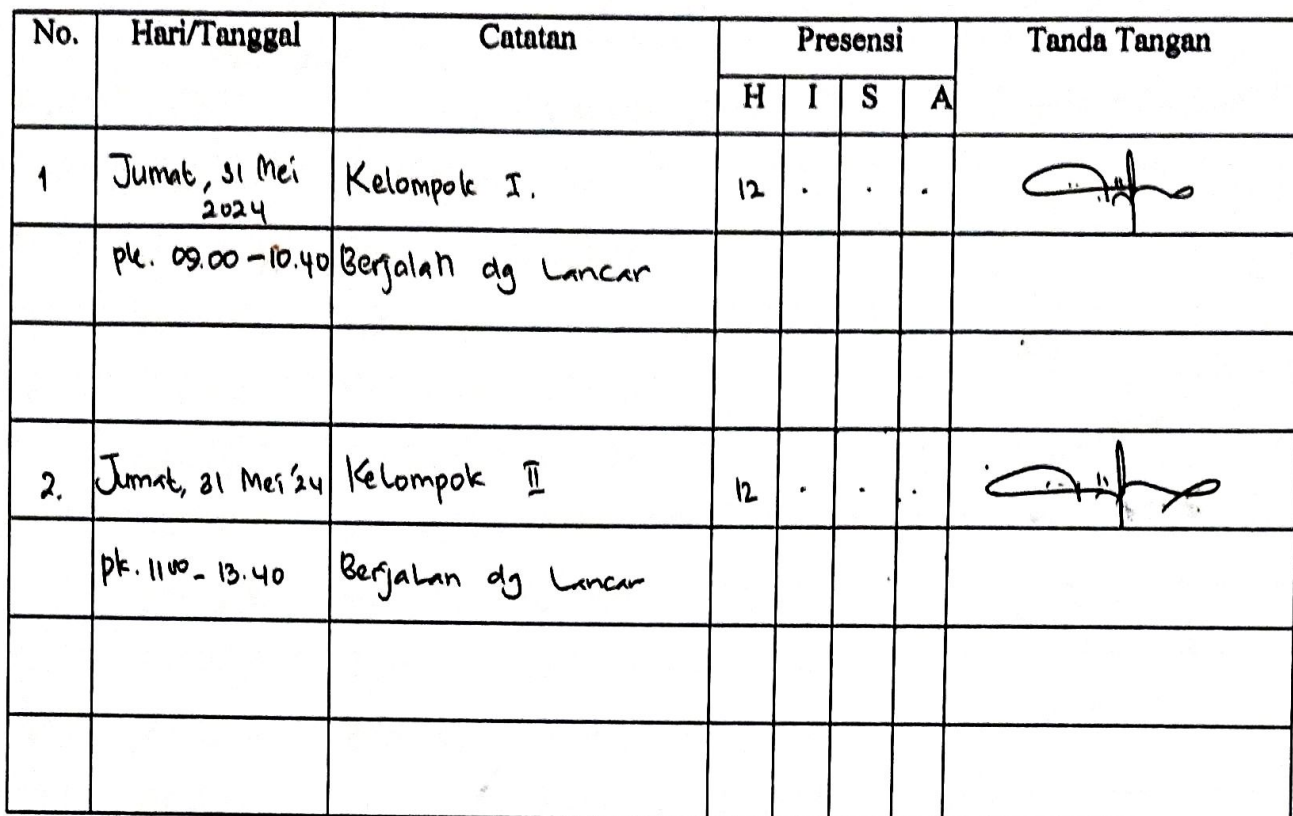 No. Hari/Tanggal Catatan Presensi Tanda Tangan
H I S A
1 Jumat, 31 Mei 2024 Kelompok I. 12 . . .
pk. 09.00 - 10.40 Berjalan dg Lancar
2. Jumat, 31 Mei '24 Kelompok II 12 . . .
pk. 1100 - 13.40 Berjalan dg Lancar